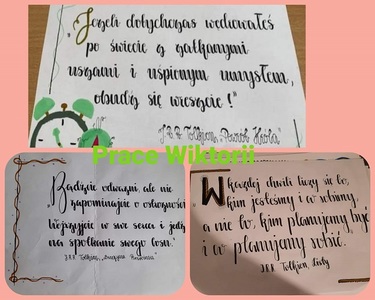 "Jeżeli dotychczas wędrowałeś
po świecie z zatkanymi
uszami i uśpionym umysłem,
obudź się wreszcie!"
J.R.R. Tolkien, "Powrót Króla"
Prace Wiktorii
"Bądźcie odważni, ale nie
zapominajcie o ostrożności
Wejrzyjcie w swe serca i jedźcie
na spotkanie swego losu."
J.R.R. Tolkien,
W każdej chwili liczy się to,
kim jesteśmy i co robimy,
a nie to, kim planujemy być
i co planujemy robić.
J.R.R. Tolkien, Listy